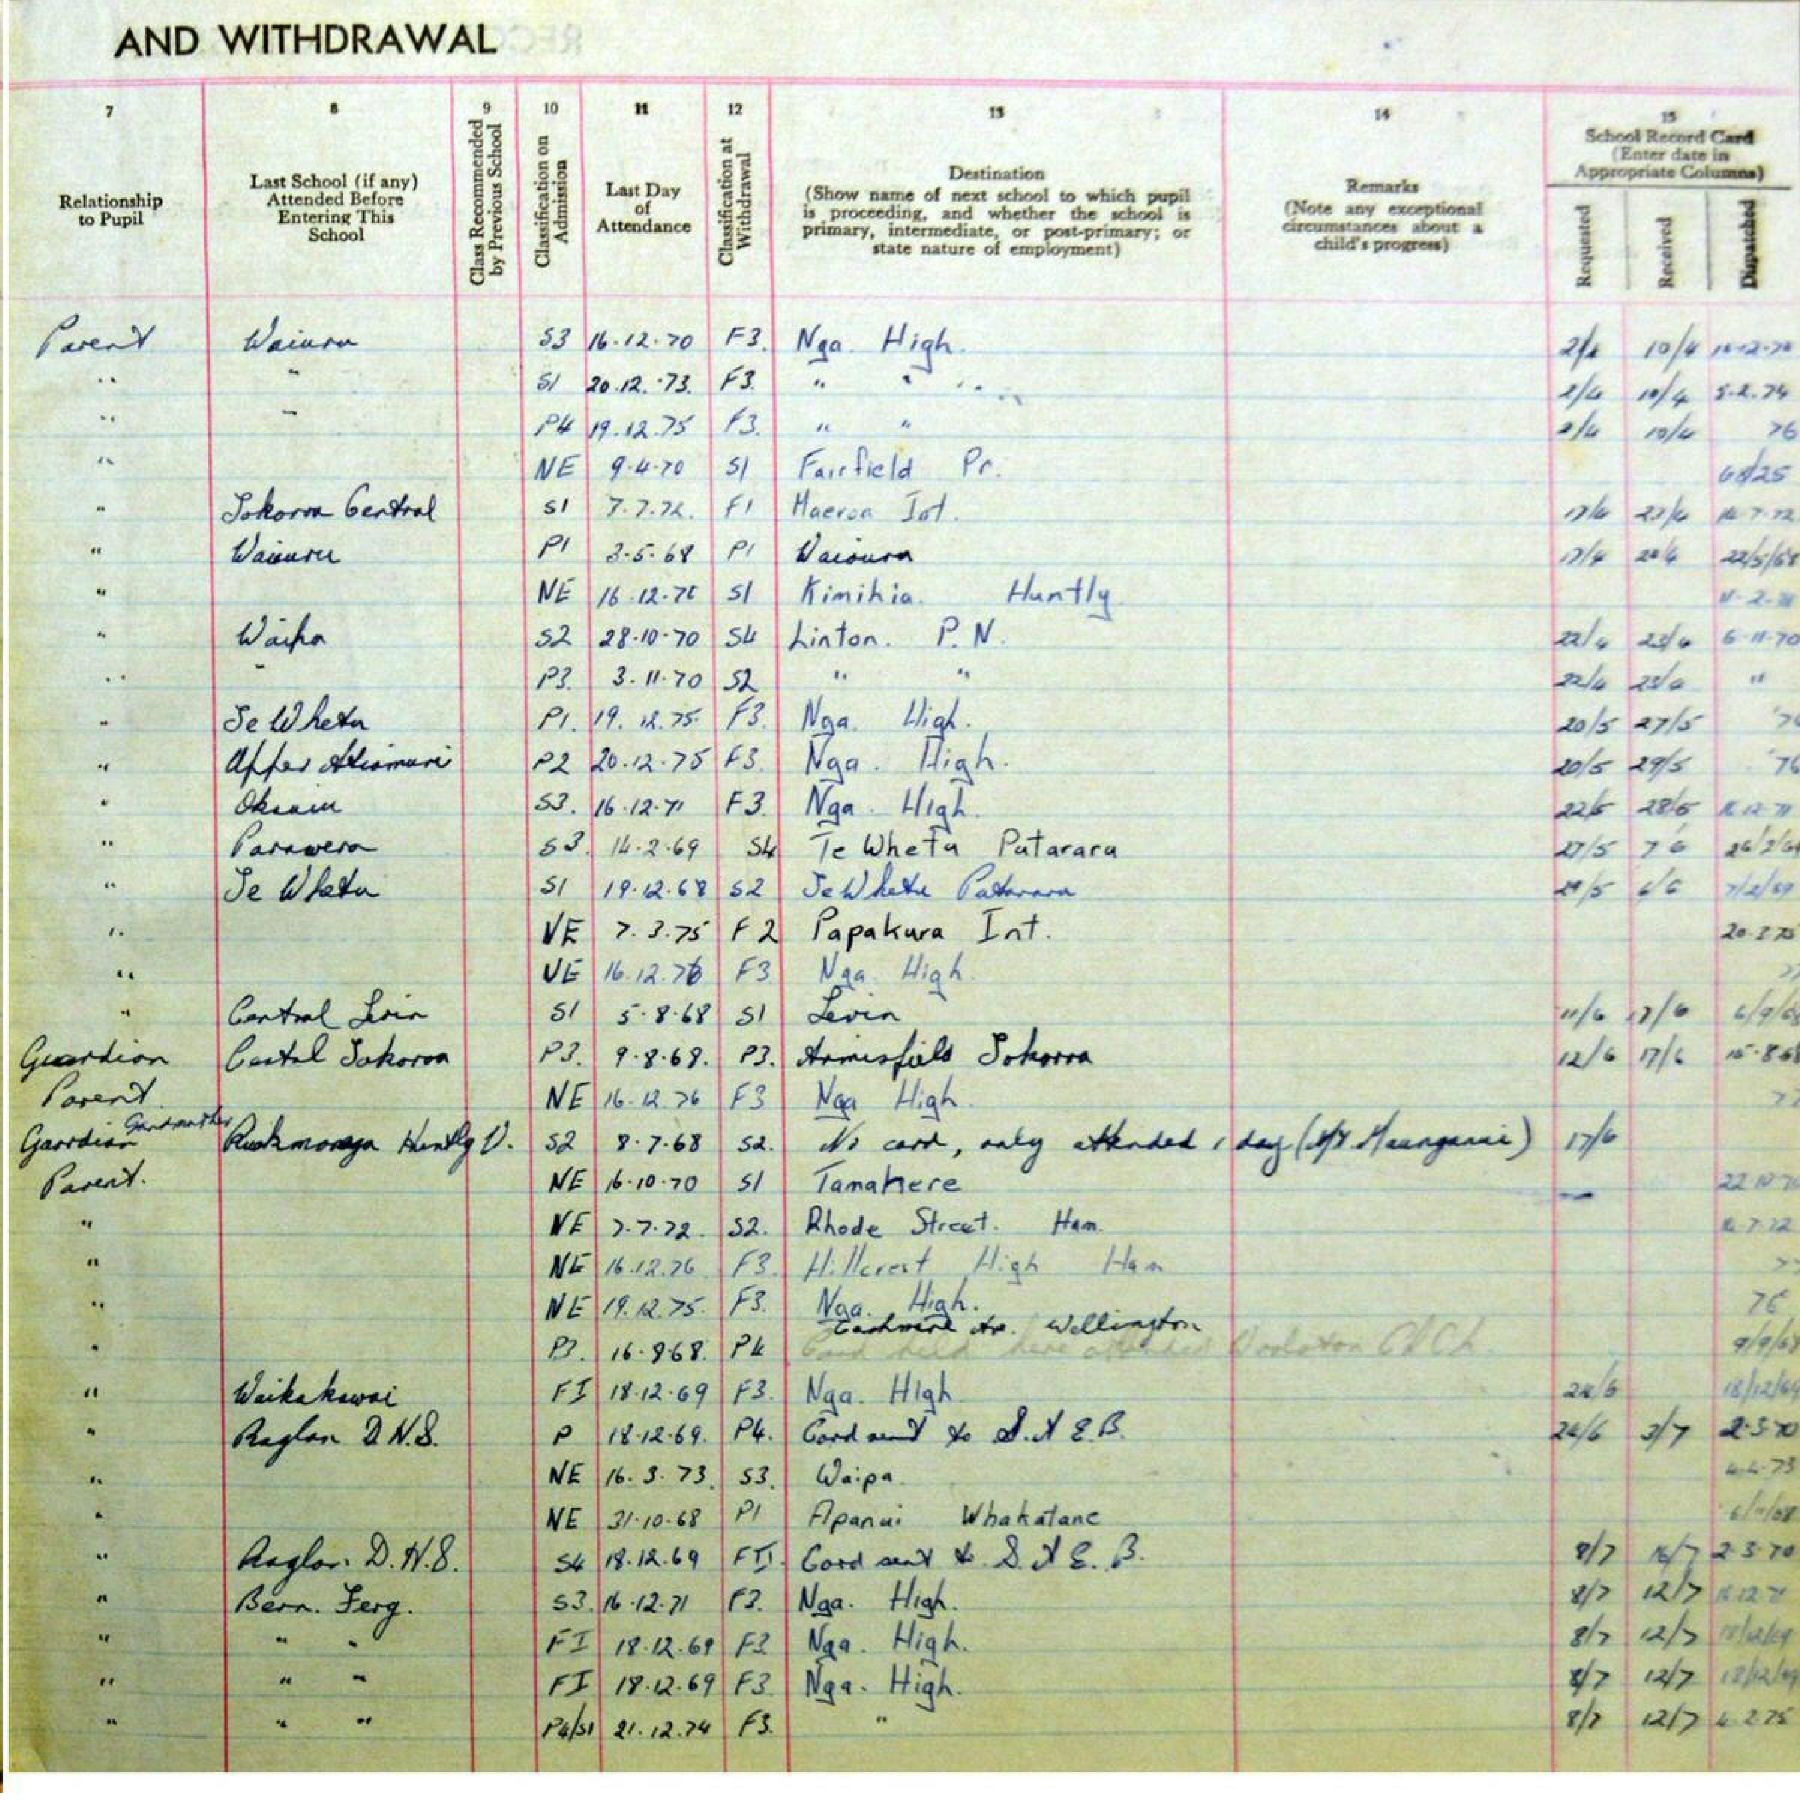 AND WITHDRAWAL
7 8 9 10 11 12 13 14 15
Relationship to Pupil
Last School (if any) Attended Before Entering This School
Class Recommended by Previous School
Classification on Admission
Last Day of Attendance
Classification at Withdrawal
Destination (Show name of next school to which pupil is proceeding, and whether the school is primary, intermediate, or post-primary; or state nature of employment)
Remarks (Note any exceptional circumstances about a child's progress)
School Record Card (Enter date in Appropriate Columns)
Requested Received Dispatched
Parent Waiuru S3 16.12.70 F3. Nga. High. 10/4
" " S1 20.12.73. F3. " " " 2/4 10/4 5.2.74
" " P4 19.12.75 F3. " " 2/4 10/4 76
" NE 9.4.70 S1 Fairfield Pr.
" Tokoroa Central S1 7.7.72. F1 Maeroa Int. 17/4 23/4 14.7.72
" Waiouru P1 3.5.68 P1 Waioura 17/4 22/5/68
" NE 16.12.75 S1 Kimihia. Huntly
" Waipa S2 28.10.70 S4 Linton. P.N. 22/4 23/4 6.11.70
" " P3. 3.11.70 S2 " " 22/4 23/4 "
" Te Whetu P1. 19.12.75 F3. Nga. High. 20/5 27/5 76
" Upper Atiamuri P2 20.12.75 F3. Nga. High. 20/5 29/5 '76
" S3. 16.12.71 F3. Nga. High. 22/5 28/5 16.12.71
" Parawera S3. 14.2.69 S4 Te Wheta Patarara 27/5 7/6 26/2/69
" Te Whetu S1 19.12.68 S2 Te Whetu Patarara 6/6 7/2/69
" NE 7.3.75 F2 Papakura Int. 20.3.75
" NE 16.12.76 F3 Nga. High. 77
" Central Levin S1 5.8.68 S1 Levin 11/6 17/6 6/9/68
Guardian Central Tokoroa P3. 9.8.68. P3. Armisfield Tokoroa 12/6 17/6 15.8.68
Parent. NE 16.12.76 F3 Nga High. 77
Grandmother
Gaurdian Huntly S2 8.7.68 S2. No card, only attended 1 day (Mt Maunganui) 17/6
Parent. NE 16.10.70 S1 Tamahere — 22.10.70
" NE 7.7.72. S2. Rhode Street. Ham. 14.7.72
" NE 16.12.76 F3. Hillcrest High Ham 77
" NE 19.12.75. F3. Nga. High. 76
Cashmere Av. Wellington
" P3. 16.8.68. P4 Card held here attended CHCh. 9/9/68
" Waikakawai FI 18.12.69 F3. Nga. High 24/6 18/12/69
" Raglan D.H.S. P 18.12.69. P4. Card sent to S.A.E.B. 24/6 3/7 2.3.70
" NE 16.3.73. S3. Waipa. 4.4.73
" NE 31.10.68 P1 Apanui Whakatane 6/11/68
" Raglan. D.H.S. S4 18.12.69 FII. Card sent to S.A.E.B. 8/7 16/7 2.3.70
" Bern. Ferg. S3. 16.12.71 F3. Nga. High. 8/7 12/7 16.12.71
" " " FI 18.12.69 F3 Nga. High. 8/7 12/7 18/12/69
" " " FI 18.12.69 F3 Nga. High. 8/7 12/7 18/12/69
" " " P4/S1 21.12.74 F3. " 8/7 12/7 4.2.75